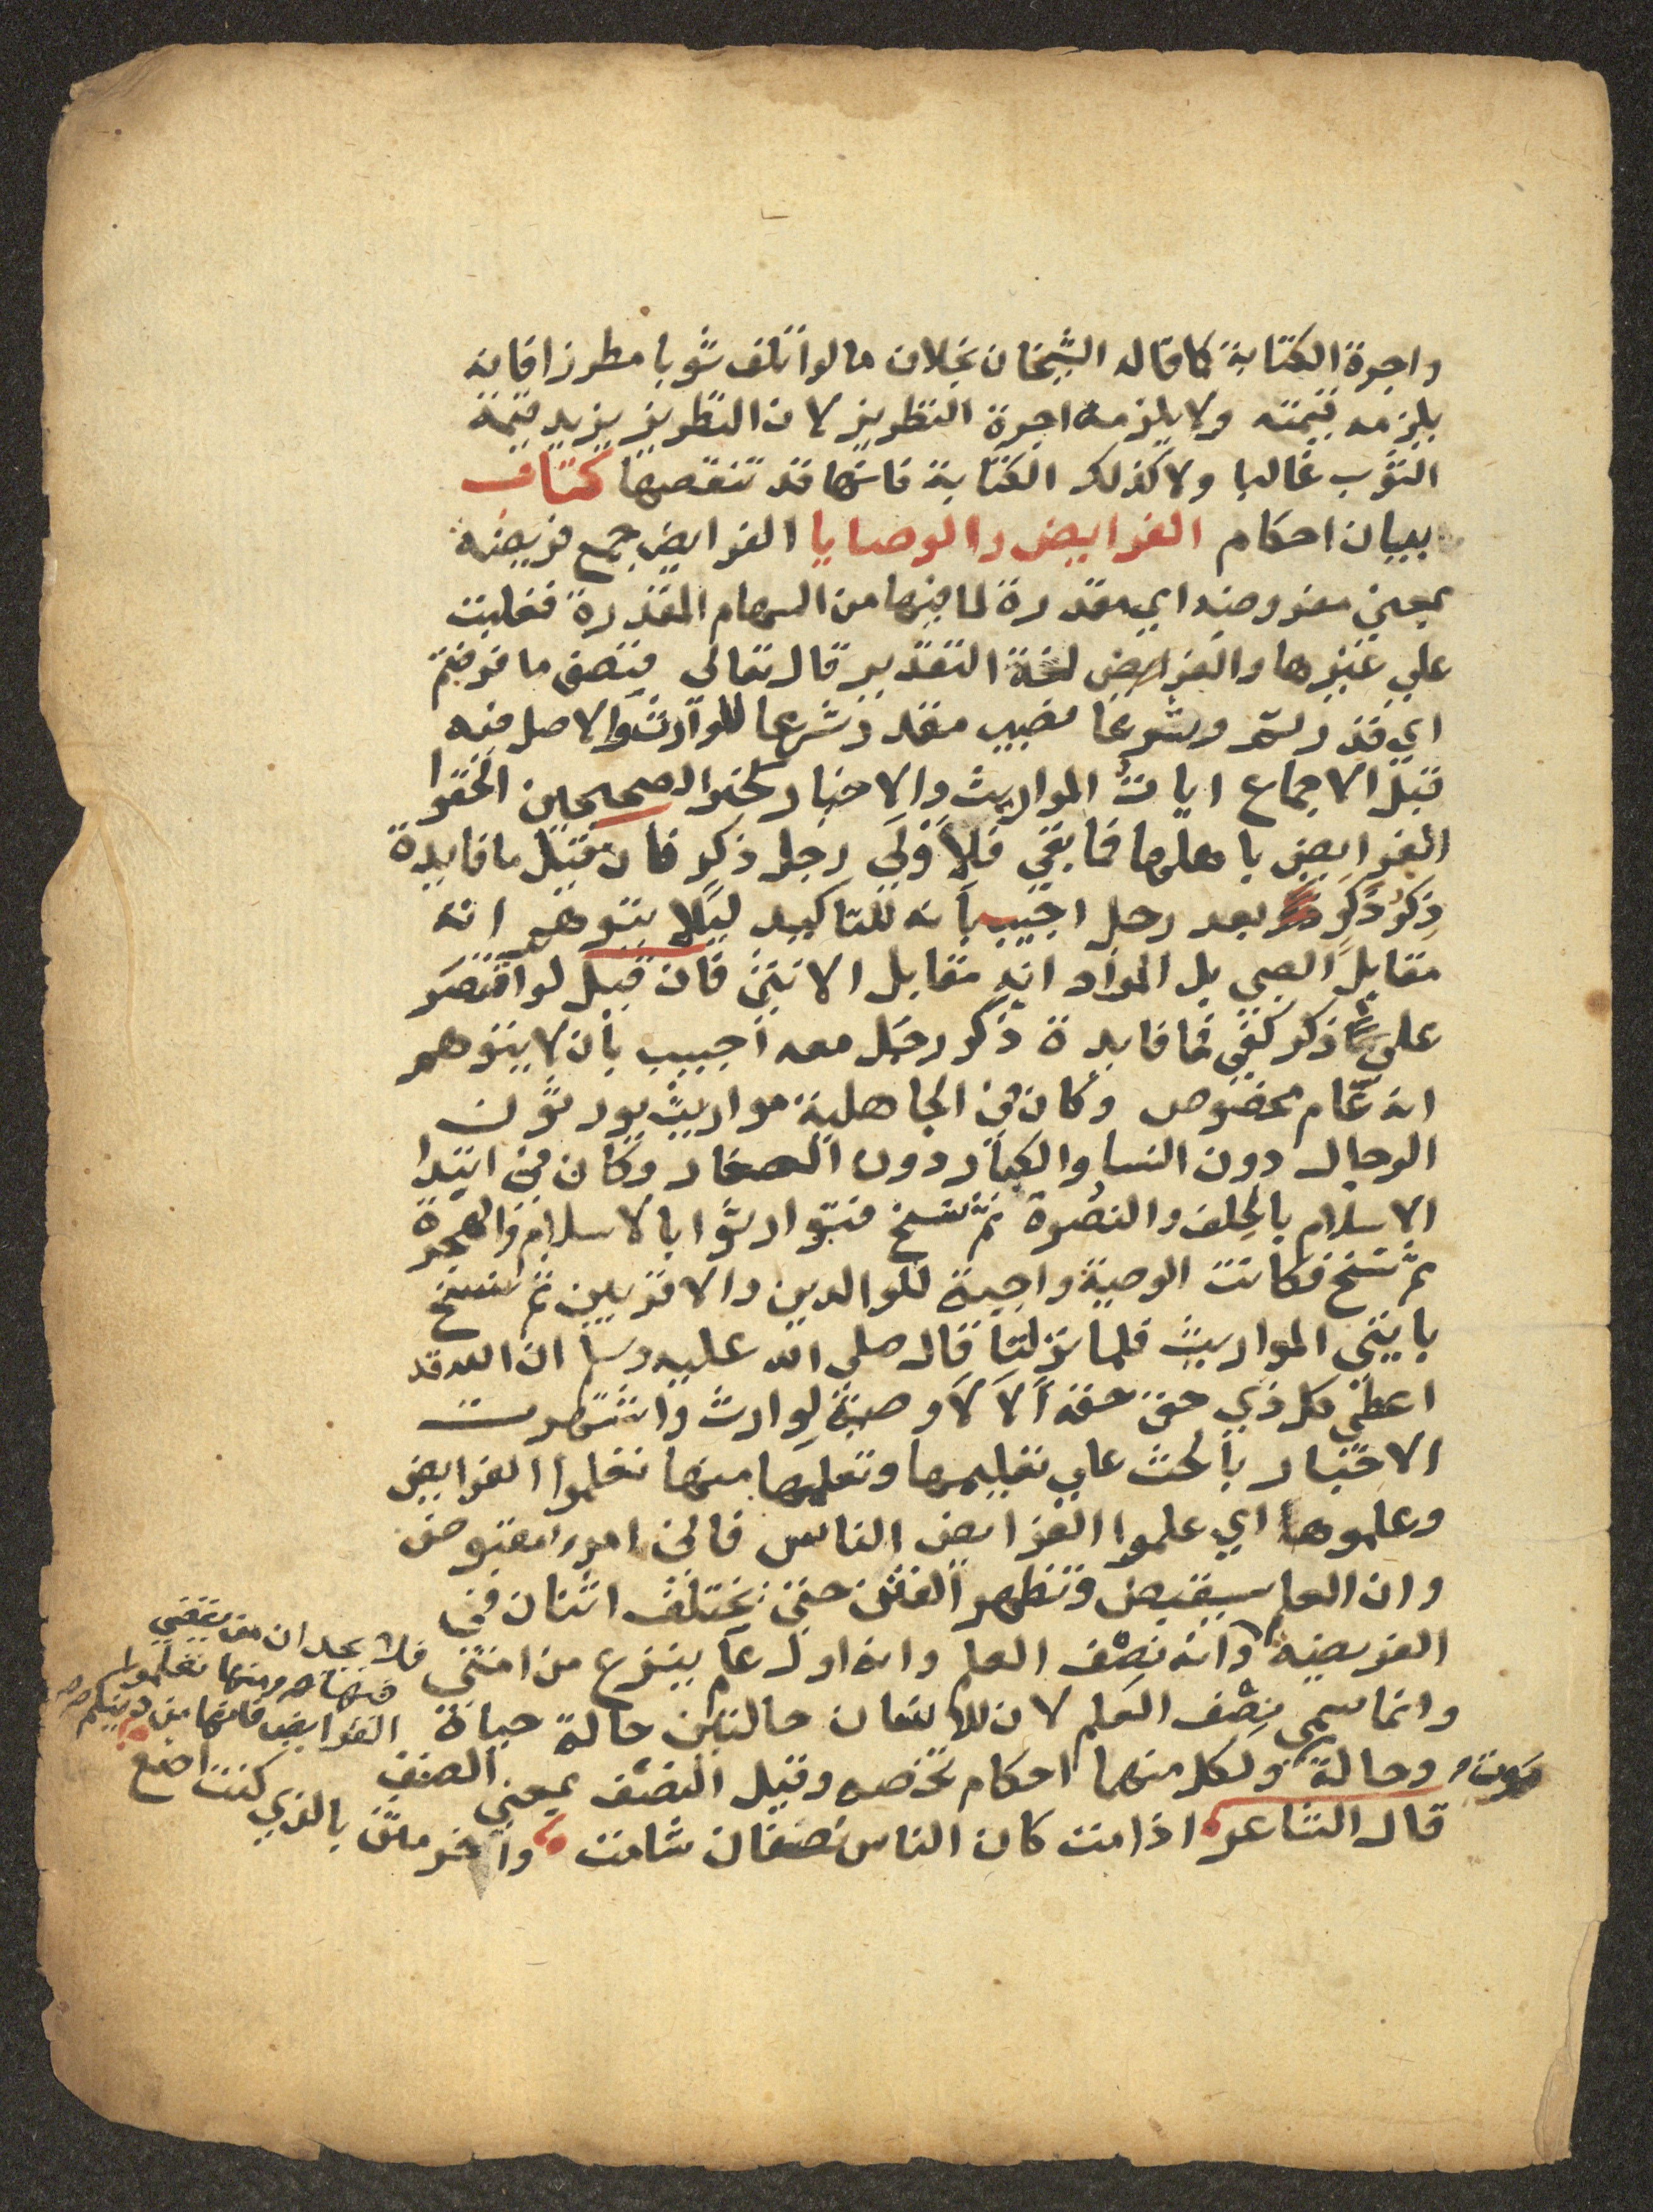 واجرة الكتابة كما قاله الشيخان بخلاف ما لو اتلف ثوبا مطرزا فانه
يلزمه قيمته ولا يلزمه اجرة التطريز لان التطريز يزيد قيمة
الثوب غالبا ولا كذلك الكتابة فانها قد تنقصها كتاب
بيان احكام الفرايض والوصايا الفرايض جمع فريضه
بمعني مفروضه اي مقدرة لما فيها من السهام المقدرة فغلبت
علي غيرها والفرض لغة التقدير قال تعالي فنصف ما فرضتم
اي قدرتم وشرعا نصيب مقدر شرعا للوارث والاصل فيه
قبل الاجماع ايات المواريث والاخبار كخبر الصحيحين الحقوا
الفرايض باهلها فما بقي فلاولي رجل ذكر فان قيل ما فايدة
ذكر ذكر بعد رجل اجيب بانه للتاكيد ليلا يتوهم انه
مقابل الصبي بل المراد انه مقابل الانثي فان قيل لو اقتصر
علي ذكر كفي فما فايدة ذكر رجل معه اجيب بان لا يتوهم
انه عام مخصوص وكان في الجاهلية مواريث يورثون
الرجال دون النسا والكبار دون الصغار وكان في ابتدا
الاسلام بالحلف والنصرة ثم نسخ فتوارثوا بالاسلام والهجرة
ثم نسخ فكانت الوصية واجبة للوالدين والاقربين ثم نسخ
بايتي المواريث فلما نزلتا قال صلي الله عليه وسلم ان الله قد
اعطي كل ذي حق حقه الا لا وصية لوارث واشتهرت
الاخبار بالحث علي تعليمها وتعلمها منها تعلموا الفرايض
وعلموها اي علموا الفرايض الناس فاني امرؤ مقبوض
وان العلم سيقبض وتظهر الفتن حتي يختلف اثنان في
الفريضه فلا يجدان من يقضي
فيها ومنها تعلموا
الفرايض فانها من دينكم
وانه نصف العلم وانه اول علم ينزع من امتي
وانما سمي نصف العلم لان للانسان حالتين حالة حياة
وحالة موت ولكل منهما احكام تخصه وقيل النصف بمعني الصنف
قال الشاعر اذا مت كان الناس نصفان شامت واخر مثن بالذي كنت اصنع